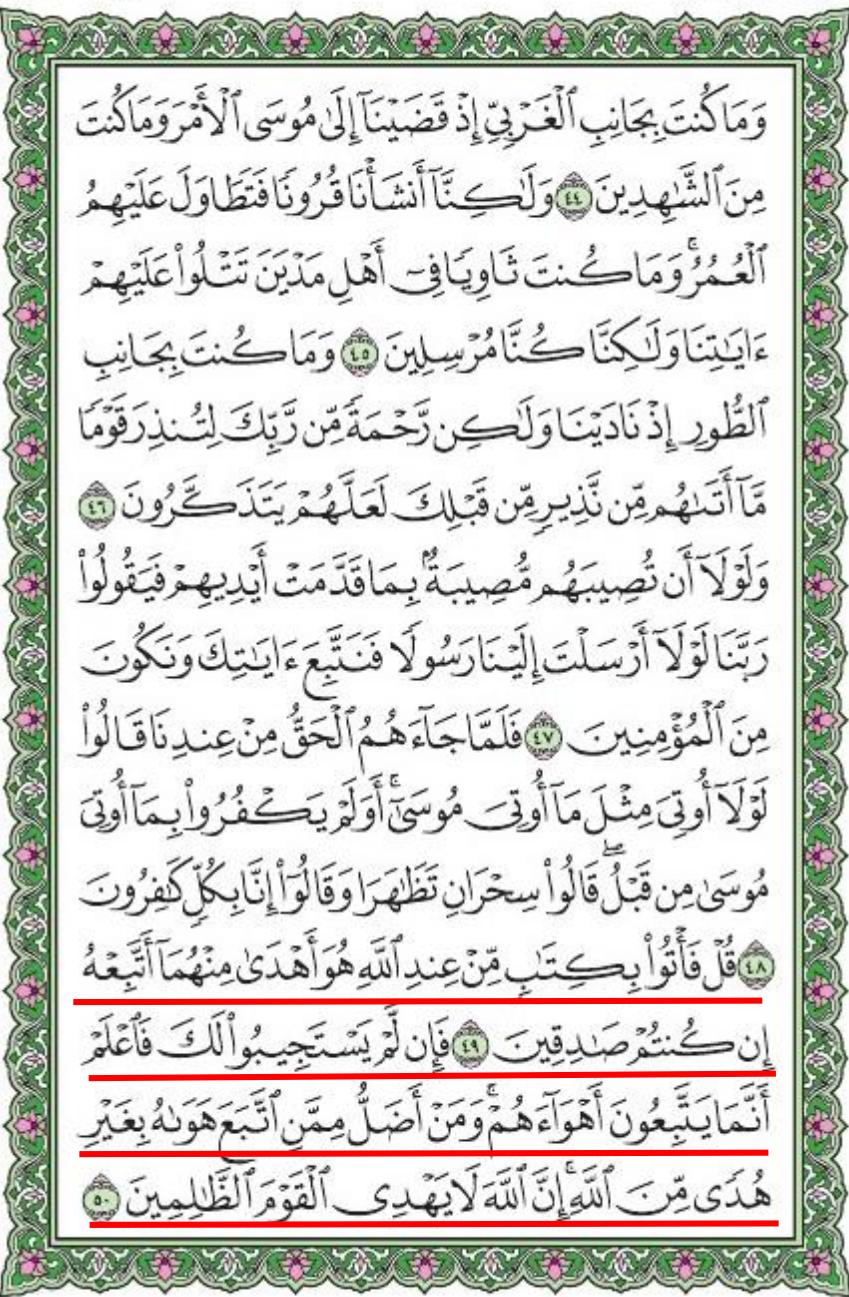 وَمَا كُنتَ بِجَانِبِ ٱلْغَرْبِيِّ إِذْ قَضَيْنَآ إِلَىٰ مُوسَى ٱلْأَمْرَ وَمَا كُنتَ
مِنَ ٱلشَّٰهِدِينَ ٤٤ وَلَٰكِنَّآ أَنشَأْنَا قُرُونًا فَتَطَاوَلَ عَلَيْهِمُ
ٱلْعُمُرُ ۚ وَمَا كُنتَ ثَاوِيًا فِىٓ أَهْلِ مَدْيَنَ تَتْلُوا۟ عَلَيْهِمْ
ءَايَٰتِنَا وَلَٰكِنَّا كُنَّا مُرْسِلِينَ ٤٥ وَمَا كُنتَ بِجَانِبِ
ٱلطُّورِ إِذْ نَادَيْنَا وَلَٰكِن رَّحْمَةً مِّن رَّبِّكَ لِتُنذِرَ قَوْمًا
مَّآ أَتَىٰهُم مِّن نَّذِيرٍ مِّن قَبْلِكَ لَعَلَّهُمْ يَتَذَكَّرُونَ ٤٦
وَلَوْلَآ أَن تُصِيبَهُم مُّصِيبَةٌۢ بِمَا قَدَّمَتْ أَيْدِيهِمْ فَيَقُولُوا۟
رَبَّنَا لَوْلَآ أَرْسَلْتَ إِلَيْنَا رَسُولًا فَنَتَّبِعَ ءَايَٰتِكَ وَنَكُونَ
مِنَ ٱلْمُؤْمِنِينَ ٤٧ فَلَمَّا جَآءَهُمُ ٱلْحَقُّ مِنْ عِندِنَا قَالُوا۟
لَوْلَآ أُوتِىَ مِثْلَ مَآ أُوتِىَ مُوسَىٰٓ ۚ أَوَلَمْ يَكْفُرُوا۟ بِمَآ أُوتِىَ
مُوسَىٰ مِن قَبْلُ ۖ قَالُوا۟ سِحْرَانِ تَظَٰهَرَا وَقَالُوٓا۟ إِنَّا بِكُلٍّ كَٰفِرُونَ
٤٨ قُلْ فَأْتُوا۟ بِكِتَٰبٍ مِّنْ عِندِ ٱللَّهِ هُوَ أَهْدَىٰ مِنْهُمَآ أَتَّبِعْهُ
إِن كُنتُمْ صَٰدِقِينَ ٤٩ فَإِن لَّمْ يَسْتَجِيبُوا۟ لَكَ فَٱعْلَمْ
أَنَّمَا يَتَّبِعُونَ أَهْوَآءَهُمْ ۚ وَمَنْ أَضَلُّ مِمَّنِ ٱتَّبَعَ هَوَىٰهُ بِغَيْرِ
هُدًى مِّنَ ٱللَّهِ ۚ إِنَّ ٱللَّهَ لَا يَهْدِى ٱلْقَوْمَ ٱلظَّٰلِمِينَ ٥٠